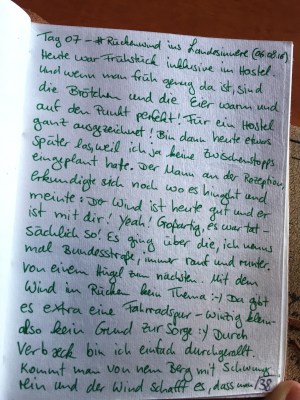 Tag 07 - #Rückenwind ins Landesinnere (06.08.18)
Heute war Frühstück inklusive im Hostel
und wenn man früh genug da ist, sind
die Brötchen und die Eier warm und
auf den Punkt perfekt! Für ein Hostel
ganz ausgezeichnet! Bin dann heute etwas
später los, weil ich ja keine Zwischenstopps
eingeplant hatte. Der Mann an der Rezeption
erkundigte sich noch wo es hingeht und
meinte: Der Wind ist heute gut und er
ist mit dir! Yeah! Großartig, es war tat-
sächlich so! Es ging über die, ich nenns
mal Bundesstraße, immer rauf und runter.
von einem Hügel zum nächsten. Mit dem
Wind im Rücken kein Thema :-) Da gibt
es extra eine Fahrradspur - winzig klein -
also kein Grund zur Sorge :-) Durch
Verbæck bin ich einfach durchgerollt.
Kommt man von nem Berg mit Schwung
rein und der Wind schafft es, dass man
38